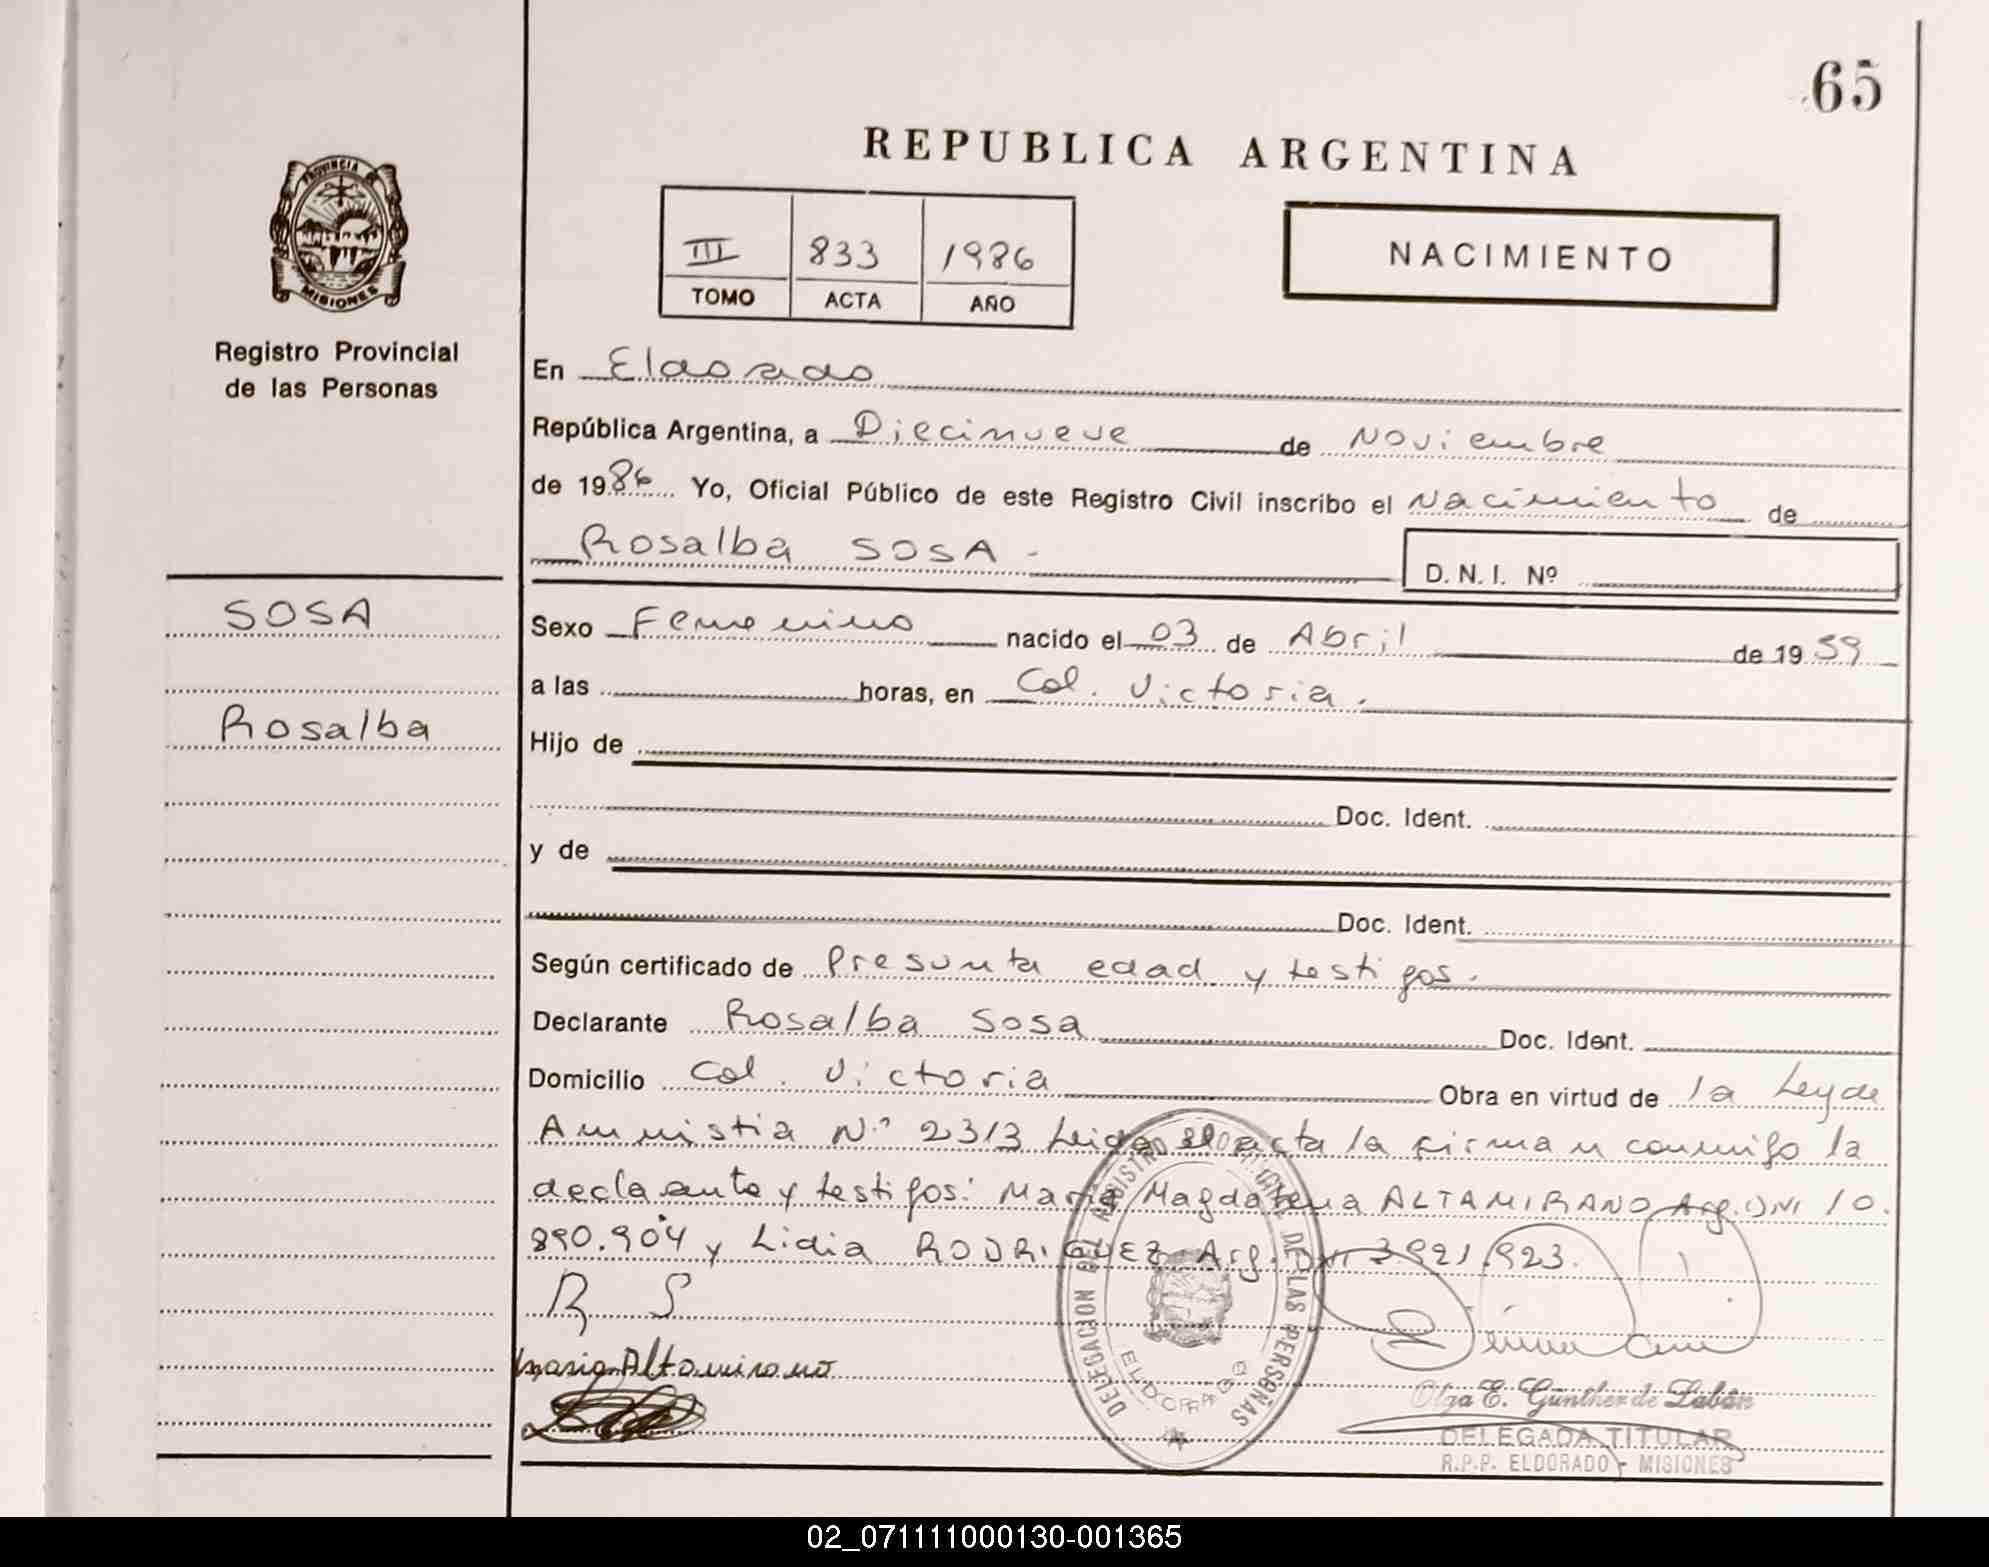 65
REPUBLICA ARGENTINA
PROVINCIA DE
MISIONES
Registro Provincial
de las Personas
III 833 1986
TOMO ACTA AÑO
NACIMIENTO
En Eldorado
República Argentina, a Diecinueve de Noviembre
de 1986 Yo, Oficial Público de este Registro Civil inscribo el Nacimiento de
Rosalba SOSA -
D. N. I. Nº
SOSA
Rosalba
Sexo Femenino nacido el 03 de Abril de 1959
a las horas, en Col. Victoria.
Hijo de
Doc. Ident.
y de
Doc. Ident.
Según certificado de Presunta edad y testigos.
Declarante Rosalba Sosa Doc. Ident.
Domicilio Col. Victoria Obra en virtud de la Ley de
Amnistia N.º 2313 Leida el acta la firman conmigo la
declarante y testigos: Maria Magdalena ALTAMIRANO Arg. DNI 10.
890.904 y Lidia RODRIGUEZ Arg. DNI 3.921.923.
R S
Maria Altamirano
DELEGACION DEL REGISTRO PROVINCIAL DE LAS PERSONAS
ELDORADO
Olga E. Günther de Labán
DELEGADA TITULAR
R.P.P. ELDORADO - MISIONES
02_071111000130-001365